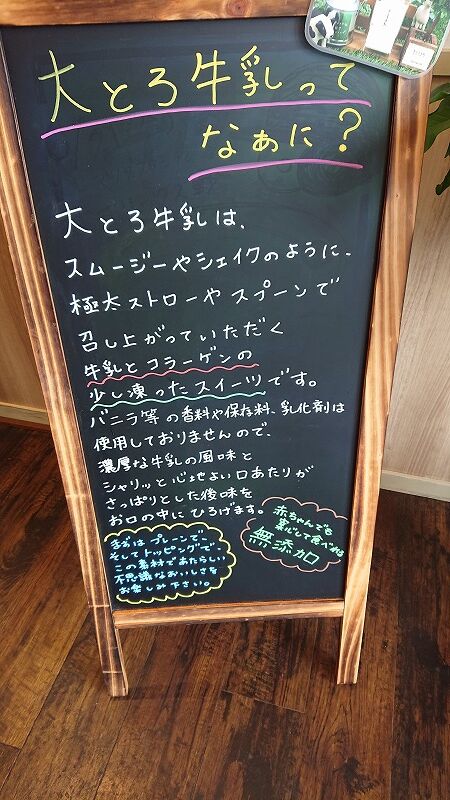 大とろ牛乳って
なぁに？
大とろ牛乳は、
スムージーやシェイクのように、
極太ストローやスプーンで
召し上がっていただく
牛乳とコラーゲンの
少し凍ったスイーツです。
バニラ等の香料や保存料、乳化剤は
使用しておりませんので、
濃厚な牛乳の風味と
シャリッと心地よい口あたりが
さっぱりとした後味を
お口の中にひろげます。
まずはプレーンで、
そしてトッピングで、
この素材であたらしい
不思議なおいしさを
お楽しみ下さい。
赤ちゃんでも
安心して食べれる
無添加